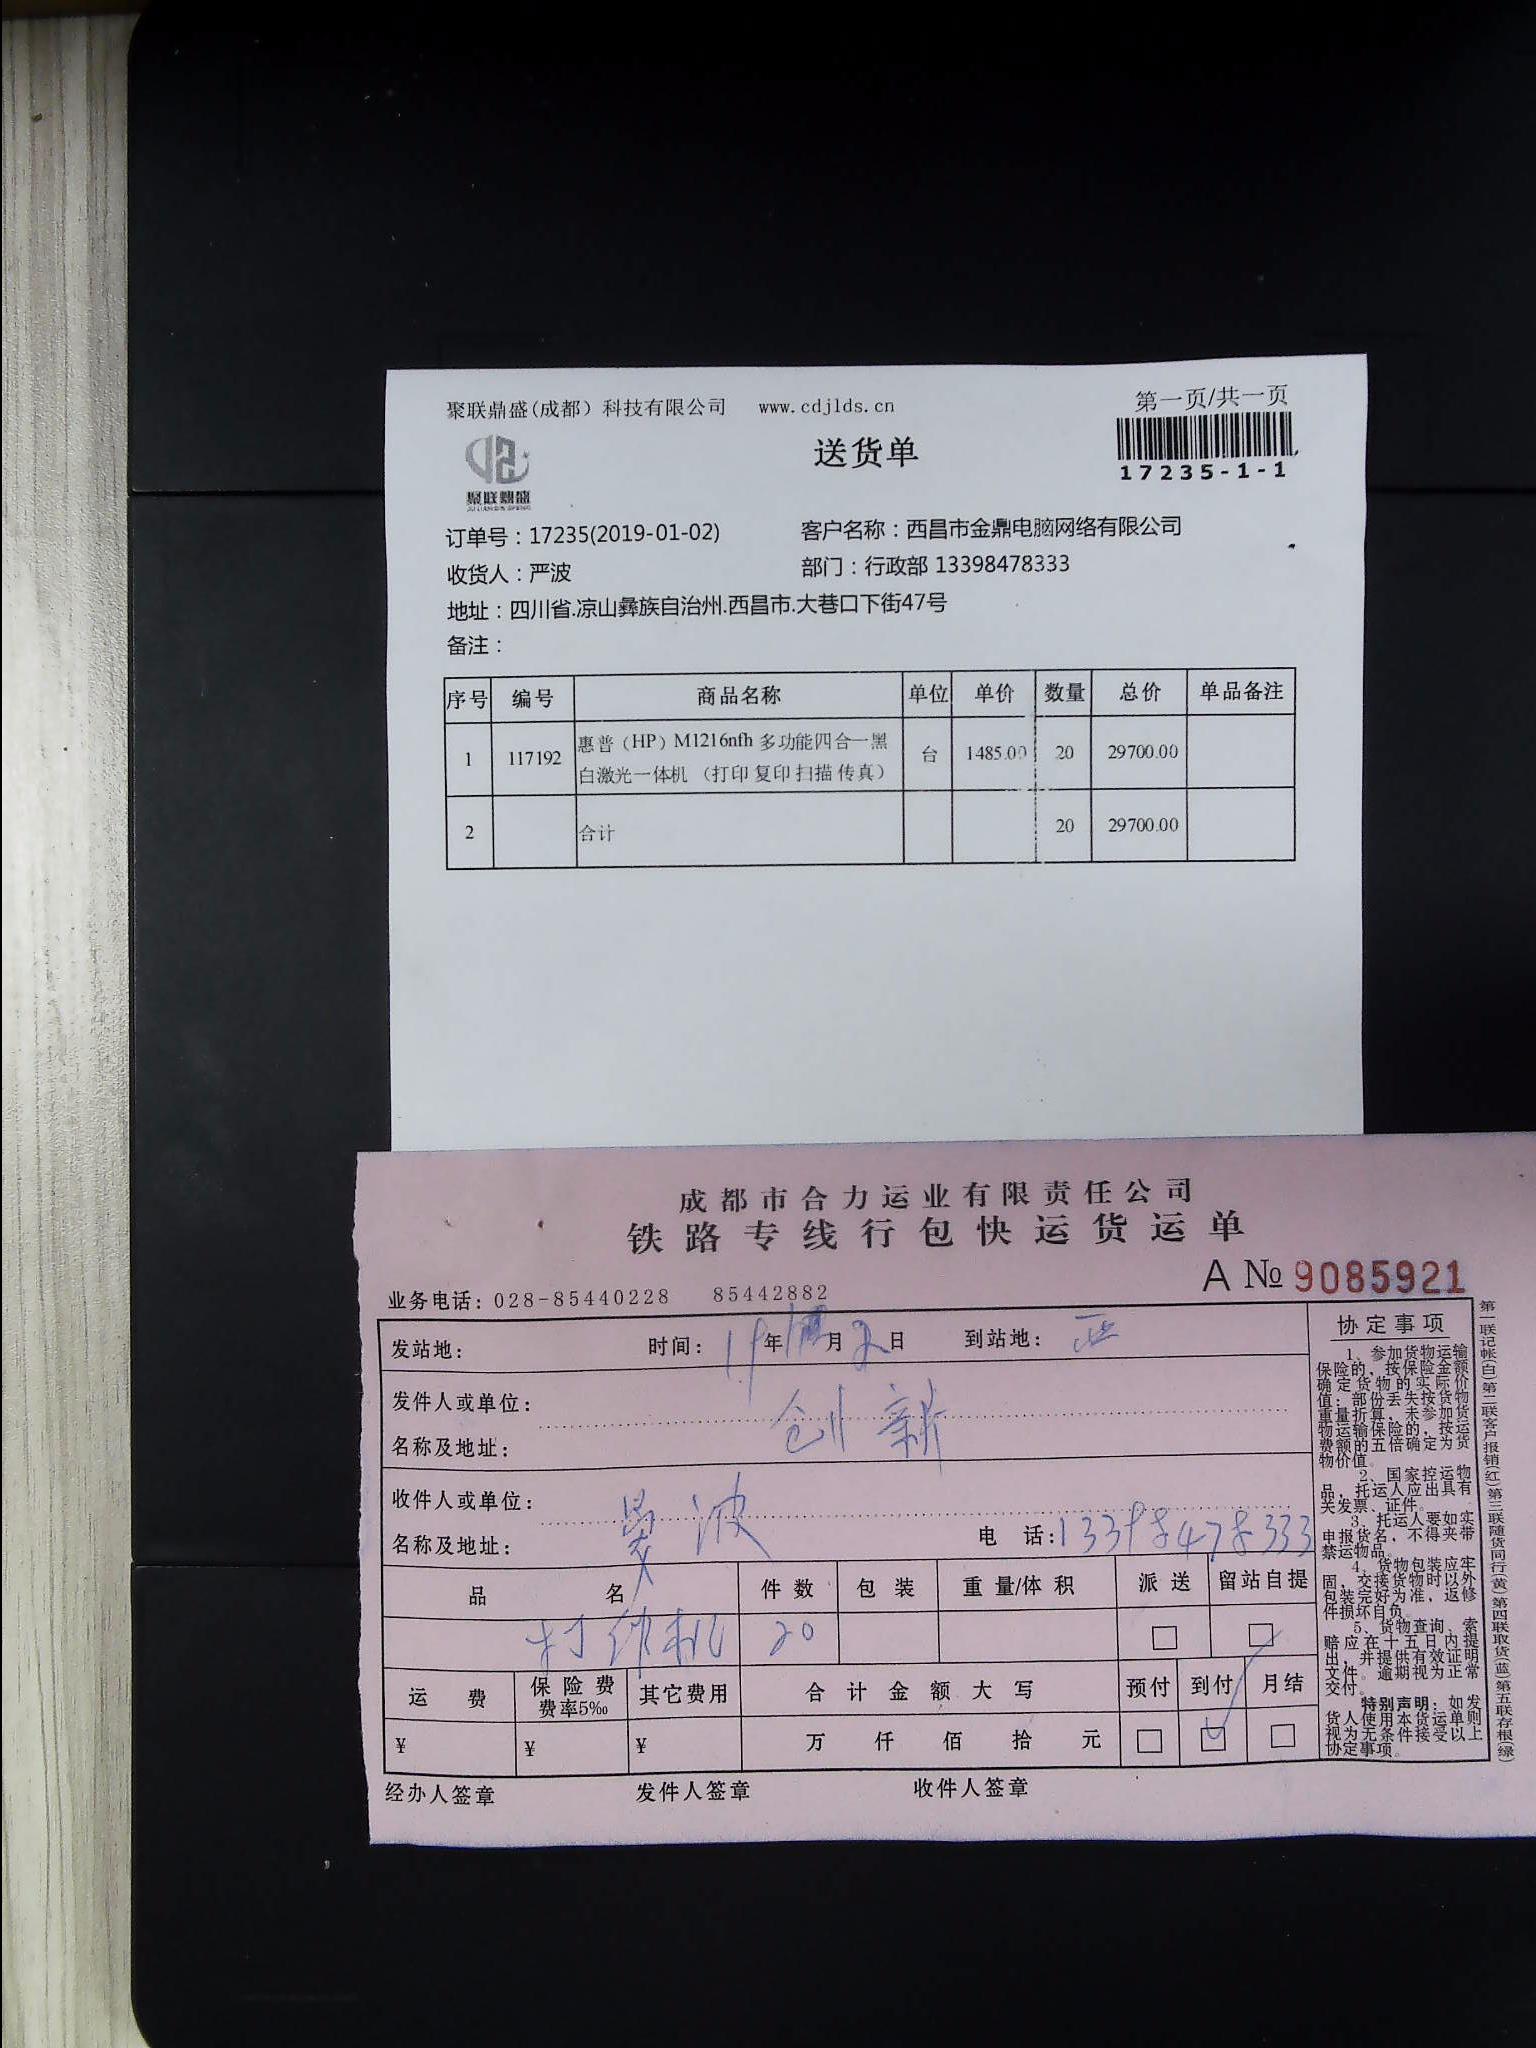 聚联鼎盛(成都）科技有限公司 www.cdjlds.cn
第一页/共一页
送货单
17235-1-1
聚联鼎盛
订单号：17235(2019-01-02) 客户名称：西昌市金鼎电脑网络有限公司
收货人：严波 部门：行政部 13398478333
地址：四川省.凉山彝族自治州.西昌市.大巷口下街47号
备注：
序号 编号 商品名称 单位 单价 数量 总价 单品备注
1 117192 惠普（HP）M1216nfh 多功能四合一黑 台 1485.00 20 29700.00
白激光一体机 （打印 复印 扫描 传真）
2 合计 20 29700.00
成都市合力运业有限责任公司
铁路专线行包快运货运单
A № 9085921
业务电话: 028-85440228 85442882
发站地: 时间: 19年 月2日 到站地:
发件人或单位: 创新
名称及地址:
收件人或单位: 波
名称及地址: 电 话:13398478333
品 名 件数 包装 重量/体积 派送 留站自提
打印机 20
运 费 保险费 其它费用 合计金额大写 预付 到付 月结
费率5‰
¥ ¥ ¥ 万 仟 佰 拾 元
经办人签章 发件人签章 收件人签章
协定事项
1、参加货物运输
保险的，按保险金额
确定货物的实际价
值；部份丢失按货物
重量折算，未参加货
物运输保险的，按运
费额的五倍确定为货
物价值。
2、国家控运物
品，托运人应出具有
关发票、证件。
3、托运人要如实
申报货名，不得夹带
禁运物品。
4、货物包装应牢
固，交接货物时以外
包装完好为准，返修
件损坏自负。
5、货物查询、索
赔应在十五日内提
出，并提供有效证明
文件。逾期视为正常
交付。
特别声明：如发
货人使用本货运单则
视为无条件接受以上
协定事项。
第一联记帐(白)第二联客户报销(红)第三联随货同行(黄)第四联取货(蓝)第五联存根(绿)